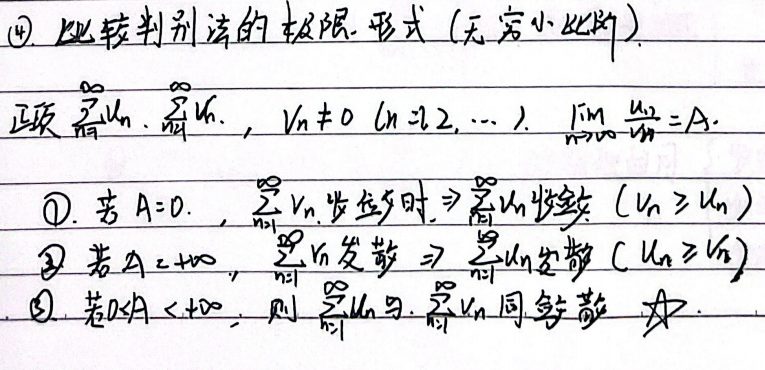 ④. 比较判别法的极限形式 (无穷小比阶).
正项 ∑_{n=1}^{∞} Un. ∑_{n=1}^{∞} Vn. , Vn ≠ 0 (n=1,2,…). lim_{n→∞} Un/Vn = A.
①. 若 A=0. , ∑_{n=1}^{∞} Vn 收敛时. ⇒ ∑_{n=1}^{∞} Un 收敛 (Vn ≥ Un)
② 若 A=+∞, ∑_{n=1}^{∞} Vn 发散 ⇒ ∑_{n=1}^{∞} Un 发散 (Un ≥ Vn)
③. 若 0<A<+∞, 则 ∑_{n=1}^{∞} Un 与 ∑_{n=1}^{∞} Vn 同敛散 ☆.